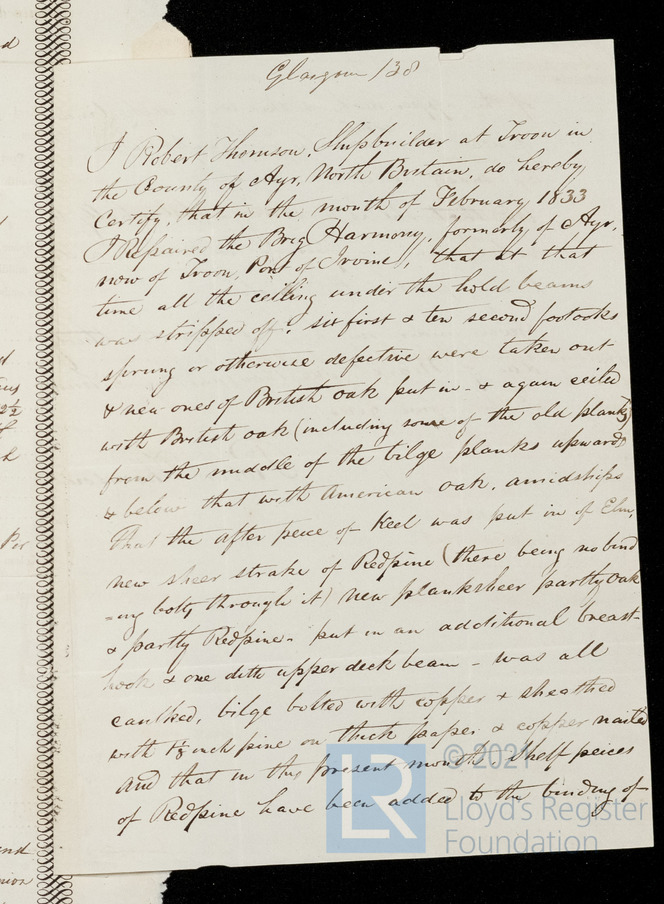 Glasgow 138
I Robert Thomson, Shipbuilder at Troon in
the County of Ayr, North Britain, do hereby
Certify, that in the month of February 1833
I Repaired the Brig Harmony, formerly of Ayr,
now of Troon, Port of Irvine, that at that
time all the ceilling under the hold beams
was stripped off, six first & ten second footooks
sprung or otherwise defective were taken out
& new ones of British oak put in - & again ceiled
with British oak (including some of the old planks)
from the middle of the bilge planks upwards
& below that with American oak, amidships
That the after peice of Keel was put in of Elm,
new sheer strake of Redpine (there being no bind
=ing bolts through it) new planksheer partly oak
& partly Redpine - put in an additional breast-
hook & one ditto upper deck beam - was all
caulked, bilge bolted with copper & sheathed
with inch pine on thick paper & copper nailed
And that in this present month Shelf peices
of Redpine have been added to the binding of
LR
© 2021
Lloyd's Register
Foundation
d
d
2½
Per
and